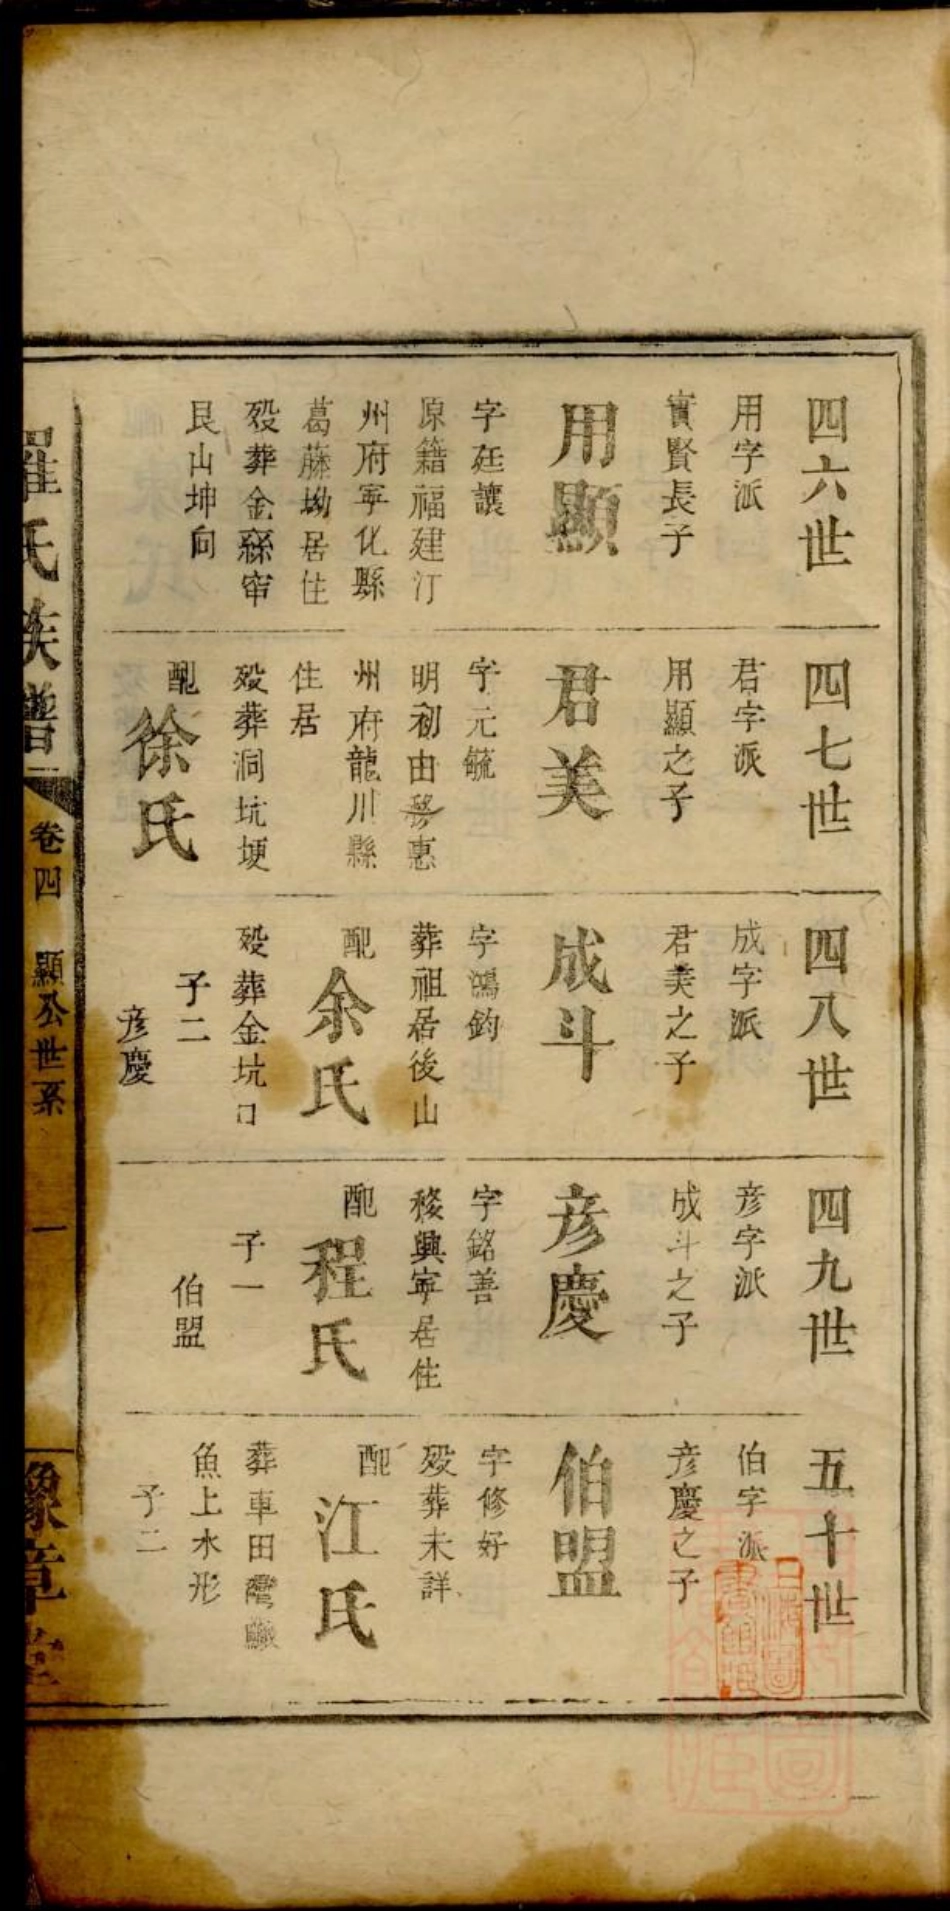 四六世
用字派
實賢長子
用顯
字廷讓
原籍福建汀
州府寧化縣
葛藤坳居住
殁葬金窑
艮山坤向
四七世
君字派
用顯之子
君美
字元毓
明初由移惠
州府龍川縣
住居
殁葬洞坑埂
配徐氏
四八世
成字派
君美之子
成斗
字鴻鈞
葬祖居後山
配余氏
殁葬金坑口
子二
彦慶
四九世
彦字派
成斗之子
彦慶
字銘善
移興寧居住
配程氏
子一
伯盟
五十世
伯字派
彦慶之子
伯盟
字修好
殁葬未詳
配江氏
葬車田
魚上水形
子二
羅氏族譜
卷四
顯公世系
一
豫章堂